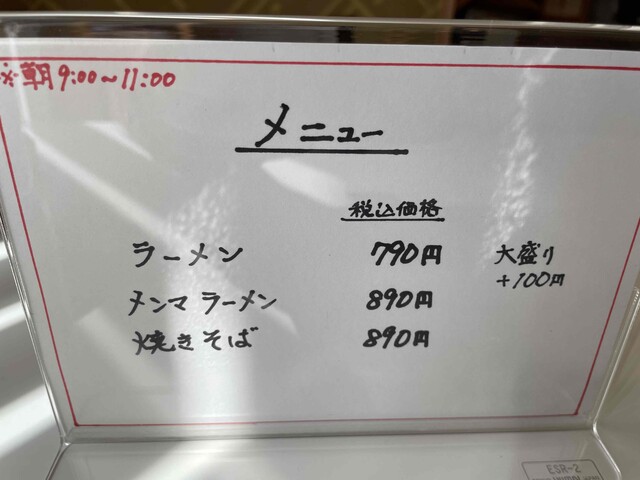 ※朝9:00～11:00
メニュー
税込価格
ラーメン 790円 大盛り
+100円
メンマラーメン 890円
焼きそば 890円
ESR-2